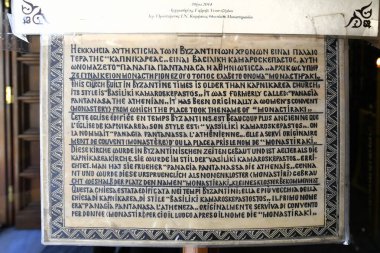 Η ΕΚΚΛΗΣΙΑ ΑΥΤΗ ΚΤΙΣΜΑ ΤΩΝ ΒΥΖΑΝΤΙΝΩΝ ΧΡΟΝΩΝ ΕΙΝΑΙ ΠΑΛΑΙΟ
ΤΕΡΑ ΤΗΣ "ΚΑΠΝΙΚΑΡΕΑΣ". ΕΙΝΑΙ ΒΑΣΙΛΙΚΗ ΚΑΜΑΡΟΣΚΕΠΑΣΤΟΣ, ΑΥΤΗ
THIS CHURCH BUILT IN BYZANTINE TIMES IS OLDER THAN KAPNIKAREA CHURCH,
ITS STYLE IS "BASILIKI KAMAROSKEPASTOS". IT WAS FORMERLY CALLED "PANAGIA
PANTANASA THE ATHENIAN". IT WAS BEEN ORIGINALLY A WOMEN'S CONVENT
(MONASTIRI) FROM WHICH THE PLACE TOOK THE NAME OF "MONASTIRAKI".
CETTE EGLISE EDIFIÉE EN TEMPS BYZANTINS, EST BEAUCOUP PLUS ANCIENNE QUE
L'EGLISE DE KAPNIKAREA, SON STYLE EST: "VASILIKI KAMAROSKEPASTOS". ON
LA NOMMAIT "PANAGIA PANTANASSA L'ATHÉNIENNE". ELLE A SERVI ORIGINAIRE
MENT DE COUVENT (MONASTERI) D'OU LA PLACE A PRIS LE NOM DE "MONASTIRAKI".
DIESE KIRCHE WURDE IN BYZANTINISCHEN ZEITEN GEBAUT UND IST AELTER ALS DIE
KAPNIKAREA KIRCHE, SIE WURDE IM STIL DER "VASILIKI KAMAROSKEPASTOS" ERRI
CHTET. MAN HAT SIE FRUEHER "PANAGIA PANTANASSA DIE ATHENAIS" GENA
NNT UND WURDE DIESE URSPRUENGLICH ALS NONNENKLOSTER (MONASTIRI) GEBRAU
CHT WESHALB DER PLATZ DEN NAMEN "MONASTIRAKI"
QUESTA CHIESA ESTATA EDIFICATA NEI TEMPI BYZANTINI; ELLA E PIU VECCHIA DELLA
CHIESA DI KAPNIKAREA, DI STILE "BASILIKI KAMAROSKEPASTOS". IL PRIMO NOME
ERA "PANAGIA PANTANASSA L'ATHENEZA". ORIGINALMENTE SERVIVA DI CONVENTO
PER DONNE (MONASTIRI) PERCIO IL LUOGO A PRESO IL NOME DI "MONASTIRAKI".